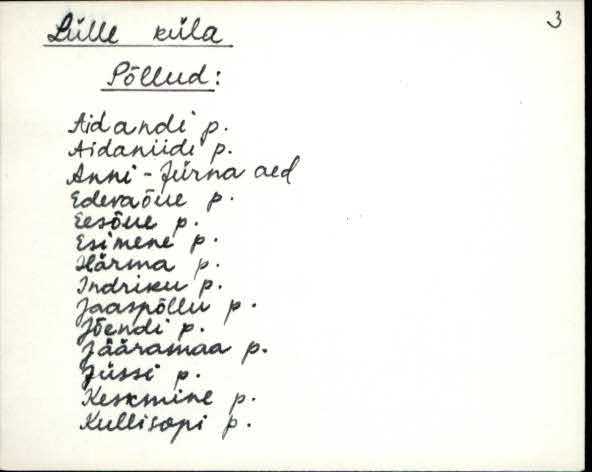 3
Lülle küla
Põllud:
Aidandi p.
Aidaniidi p.
Anni-Jürna aed
Ederaõue p.
Eesõue p.
Esimene p.
Härma p.
Indriku p.
Jaaspõllu p.
Jõendi p.
Jääramaa p.
Jüssi p.
Keskmine p.
Kullisopi p.